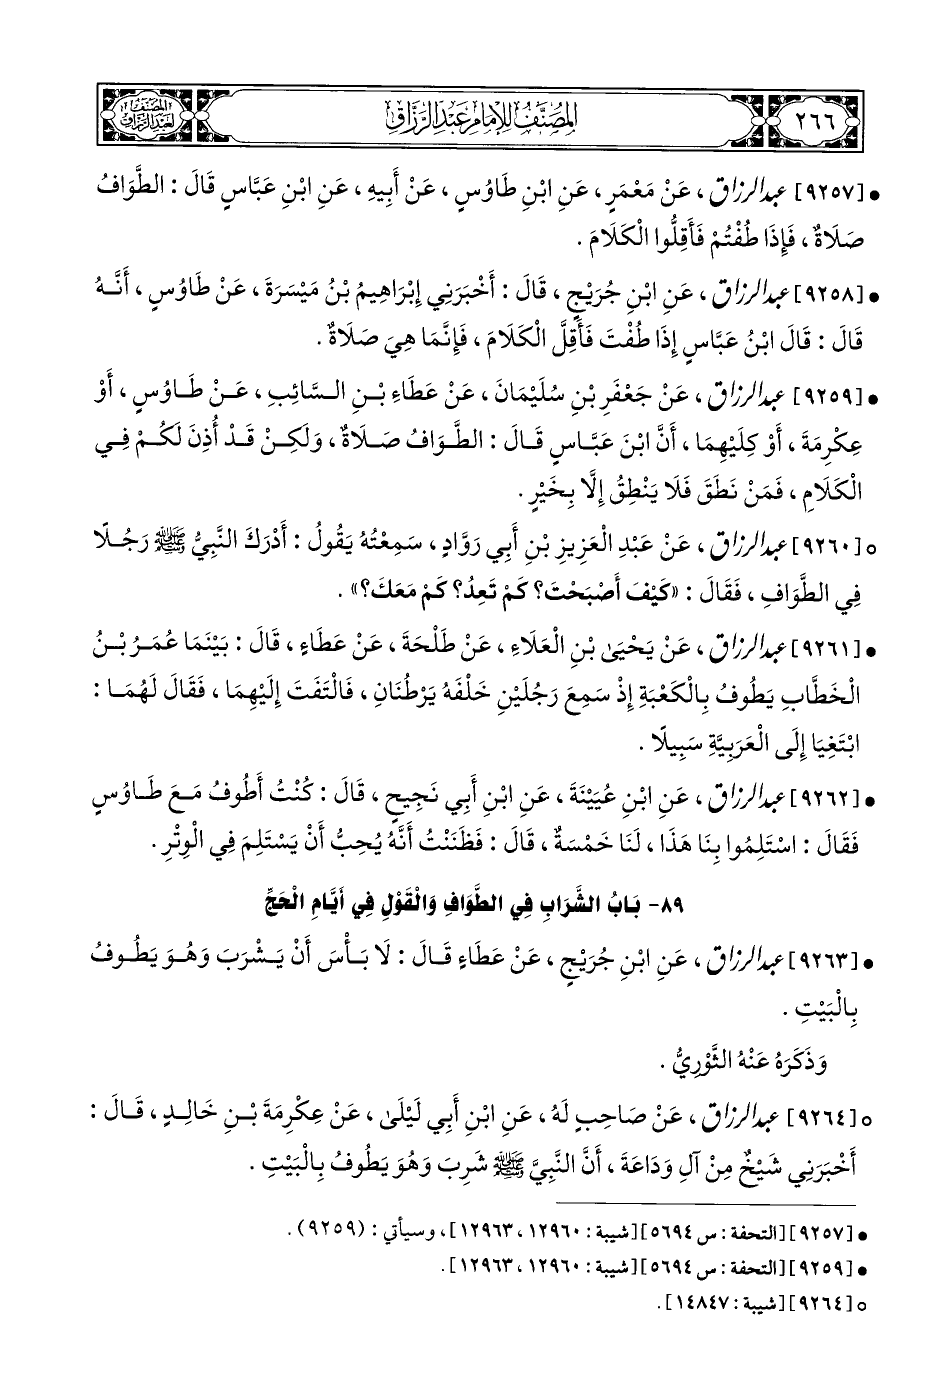 ٢٦٦
المصنف للإمام عبد الرزاق
المصنف لعبد الرزاق
• [٩٢٥٧] عبد الرزاق، عَنْ مَعْمَرٍ، عَنِ ابْنِ طَاوُسٍ، عَنْ أَبِيهِ، عَنِ ابْنِ عَبَّاسٍ قَالَ: الطَّوَافُ
صَلَاةٌ، فَإِذَا طُفْتُمْ فَأَقِلُّوا الْكَلَامَ.
• [٩٢٥٨] عبد الرزاق، عَنِ ابْنِ جُرَيْجٍ، قَالَ: أَخْبَرَنِي إِبْرَاهِيمُ بْنُ مَيْسَرَةَ، عَنْ طَاوُسٍ، أَنَّهُ
قَالَ: قَالَ ابْنُ عَبَّاسٍ إِذَا طُفْتَ فَأَقِلَّ الْكَلَامَ، فَإِنَّمَا هِيَ صَلَاةٌ.
• [٩٢٥٩] عبد الرزاق، عَنْ جَعْفَرِ بْنِ سُلَيْمَانَ، عَنْ عَطَاءِ بْنِ السَّائِبِ، عَنْ طَاوُسٍ، أَوْ
عِكْرِمَةَ، أَوْ كِلَيْهِمَا، أَنَّ ابْنَ عَبَّاسٍ قَالَ: الطَّوَافُ صَلَاةٌ، وَلَكِنْ قَدْ أُذِنَ لَكُمْ فِي
الْكَلَامِ، فَمَنْ نَطَقَ فَلَا يَنْطِقُ إِلَّا بِخَيْرٍ.
○ [٩٢٦٠] عبد الرزاق، عَنْ عَبْدِ الْعَزِيزِ بْنِ أَبِي رَوَّادٍ، سَمِعْتُهُ يَقُولُ: أَدْرَكَ النَّبِيُّ ﷺ رَجُلًا
فِي الطَّوَافِ، فَقَالَ: «كَيْفَ أَصْبَحْتَ؟ كَمْ تَعِدُ؟ كَمْ مَعَكَ؟».
• [٩٢٦١] عبد الرزاق، عَنْ يَحْيَى بْنِ الْعَلَاءِ، عَنْ طَلْحَةَ، عَنْ عَطَاءٍ، قَالَ: بَيْنَمَا عُمَرُ بْنُ
الْخَطَّابِ يَطُوفُ بِالْكَعْبَةِ إِذْ سَمِعَ رَجُلَيْنِ خَلْفَهُ يَرْطُنَانِ، فَالْتَفَتَ إِلَيْهِمَا، فَقَالَ لَهُمَا:
ابْتَغِيَا إِلَى الْعَرَبِيَّةِ سَبِيلًا.
• [٩٢٦٢] عبد الرزاق، عَنِ ابْنِ عُيَيْنَةَ، عَنِ ابْنِ أَبِي نَجِيحٍ، قَالَ: كُنْتُ أَطُوفُ مَعَ طَاوُسٍ
فَقَالَ: اسْتَلِمُوا بِنَا هَذَا، لَنَا خَمْسَةٌ، قَالَ: فَظَنَنْتُ أَنَّهُ يُحِبُّ أَنْ يَسْتَلِمَ فِي الْوِتْرِ.
٨٩- بَابُ الشَّرَابِ فِي الطَّوَافِ وَالْقَوْلِ فِي أَيَّامِ الْحَجِّ
• [٩٢٦٣] عبد الرزاق، عَنِ ابْنِ جُرَيْجٍ، عَنْ عَطَاءٍ قَالَ: لَا بَأْسَ أَنْ يَشْرَبَ وَهُوَ يَطُوفُ
بِالْبَيْتِ.
وَذَكَرَهُ عَنْهُ الثَّوْرِيُّ.
○ [٩٢٦٤] عبد الرزاق، عَنْ صَاحِبٍ لَهُ، عَنِ ابْنِ أَبِي لَيْلَى، عَنْ عِكْرِمَةَ بْنِ خَالِدٍ، قَالَ:
أَخْبَرَنِي شَيْخٌ مِنْ آلِ وَدَاعَةَ، أَنَّ النَّبِيَّ ﷺ شَرِبَ وَهُوَ يَطُوفُ بِالْبَيْتِ.
• [٩٢٥٧] [التحفة: س ٥٦٩٤] [شيبة: ١٢٩٦٠، ١٢٩٦٣]، وسيأتي: (٩٢٥٩).
• [٩٢٥٩] [التحفة: س ٥٦٩٤] [شيبة: ١٢٩٦٠، ١٢٩٦٣].
○ [٩٢٦٤] [شيبة: ١٤٨٤٧].